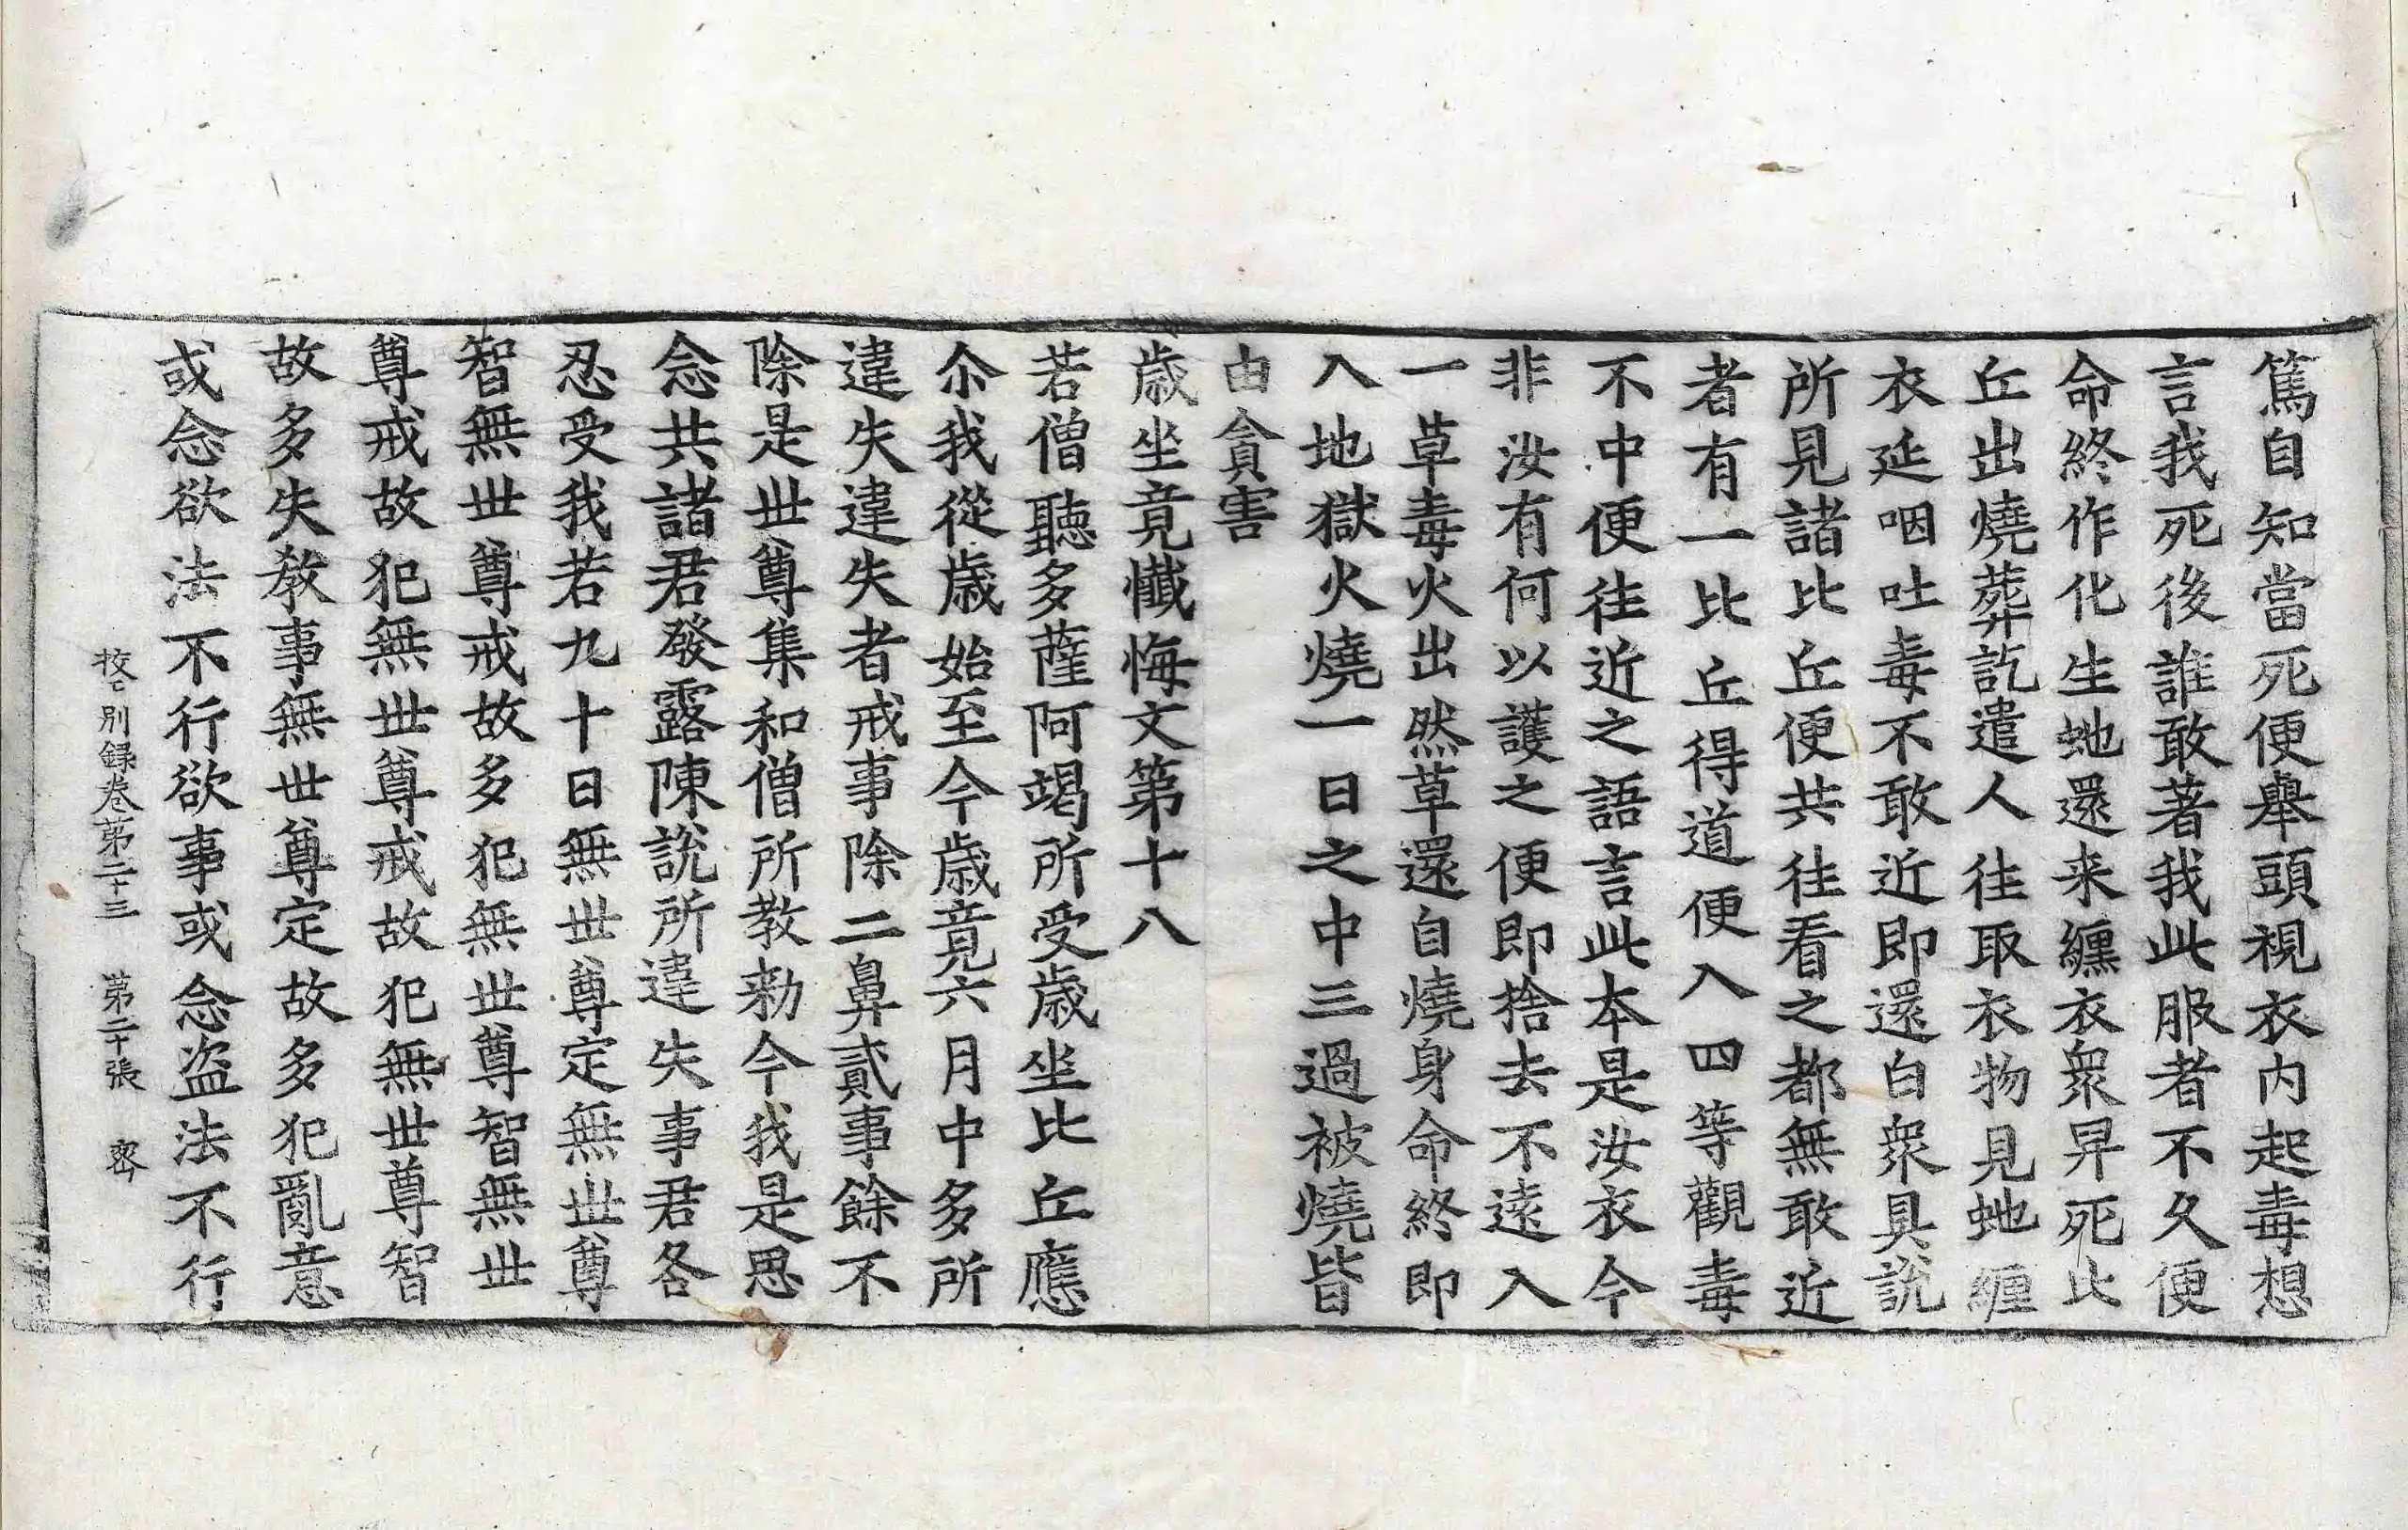 篤自知當死便舉頭視衣內起毒想
言我死後誰敢著我此服者不久便
命終作化生虵還来纏衣衆舁死比
丘出燒葬訖遣人往取衣物見虵纏
衣延咽吐毒不敢近即還白衆具說
所見諸比丘便共往看之都無敢近
者有一比丘得道便入四等觀毒
不中便往近之語言此本是汝衣今
非汝有何以護之便即捨去不遠入
一草毒火出然草還自燒身命終即
入地獄火燒一日之中三過被燒皆
由貪害
歲坐竟懺悔文第十八
若僧聽多薩阿竭所受歲坐比丘應
尒我從歲始至今歲竟六月中多所
違失違失者戒事除二鼻貳事餘不
除是丗尊集和僧所教勑今我是思
念共諸君發露陳說所違失事君各
忍受我若九十日無丗尊定無丗尊
智無丗尊戒故多犯無丗尊智無丗
尊戒故犯無丗尊戒故犯無丗尊智
故多失教事無世尊定故多犯亂意
或念欲法不行欲事或念盜法不行
挍乀別録卷第二十三　第二十張　宻